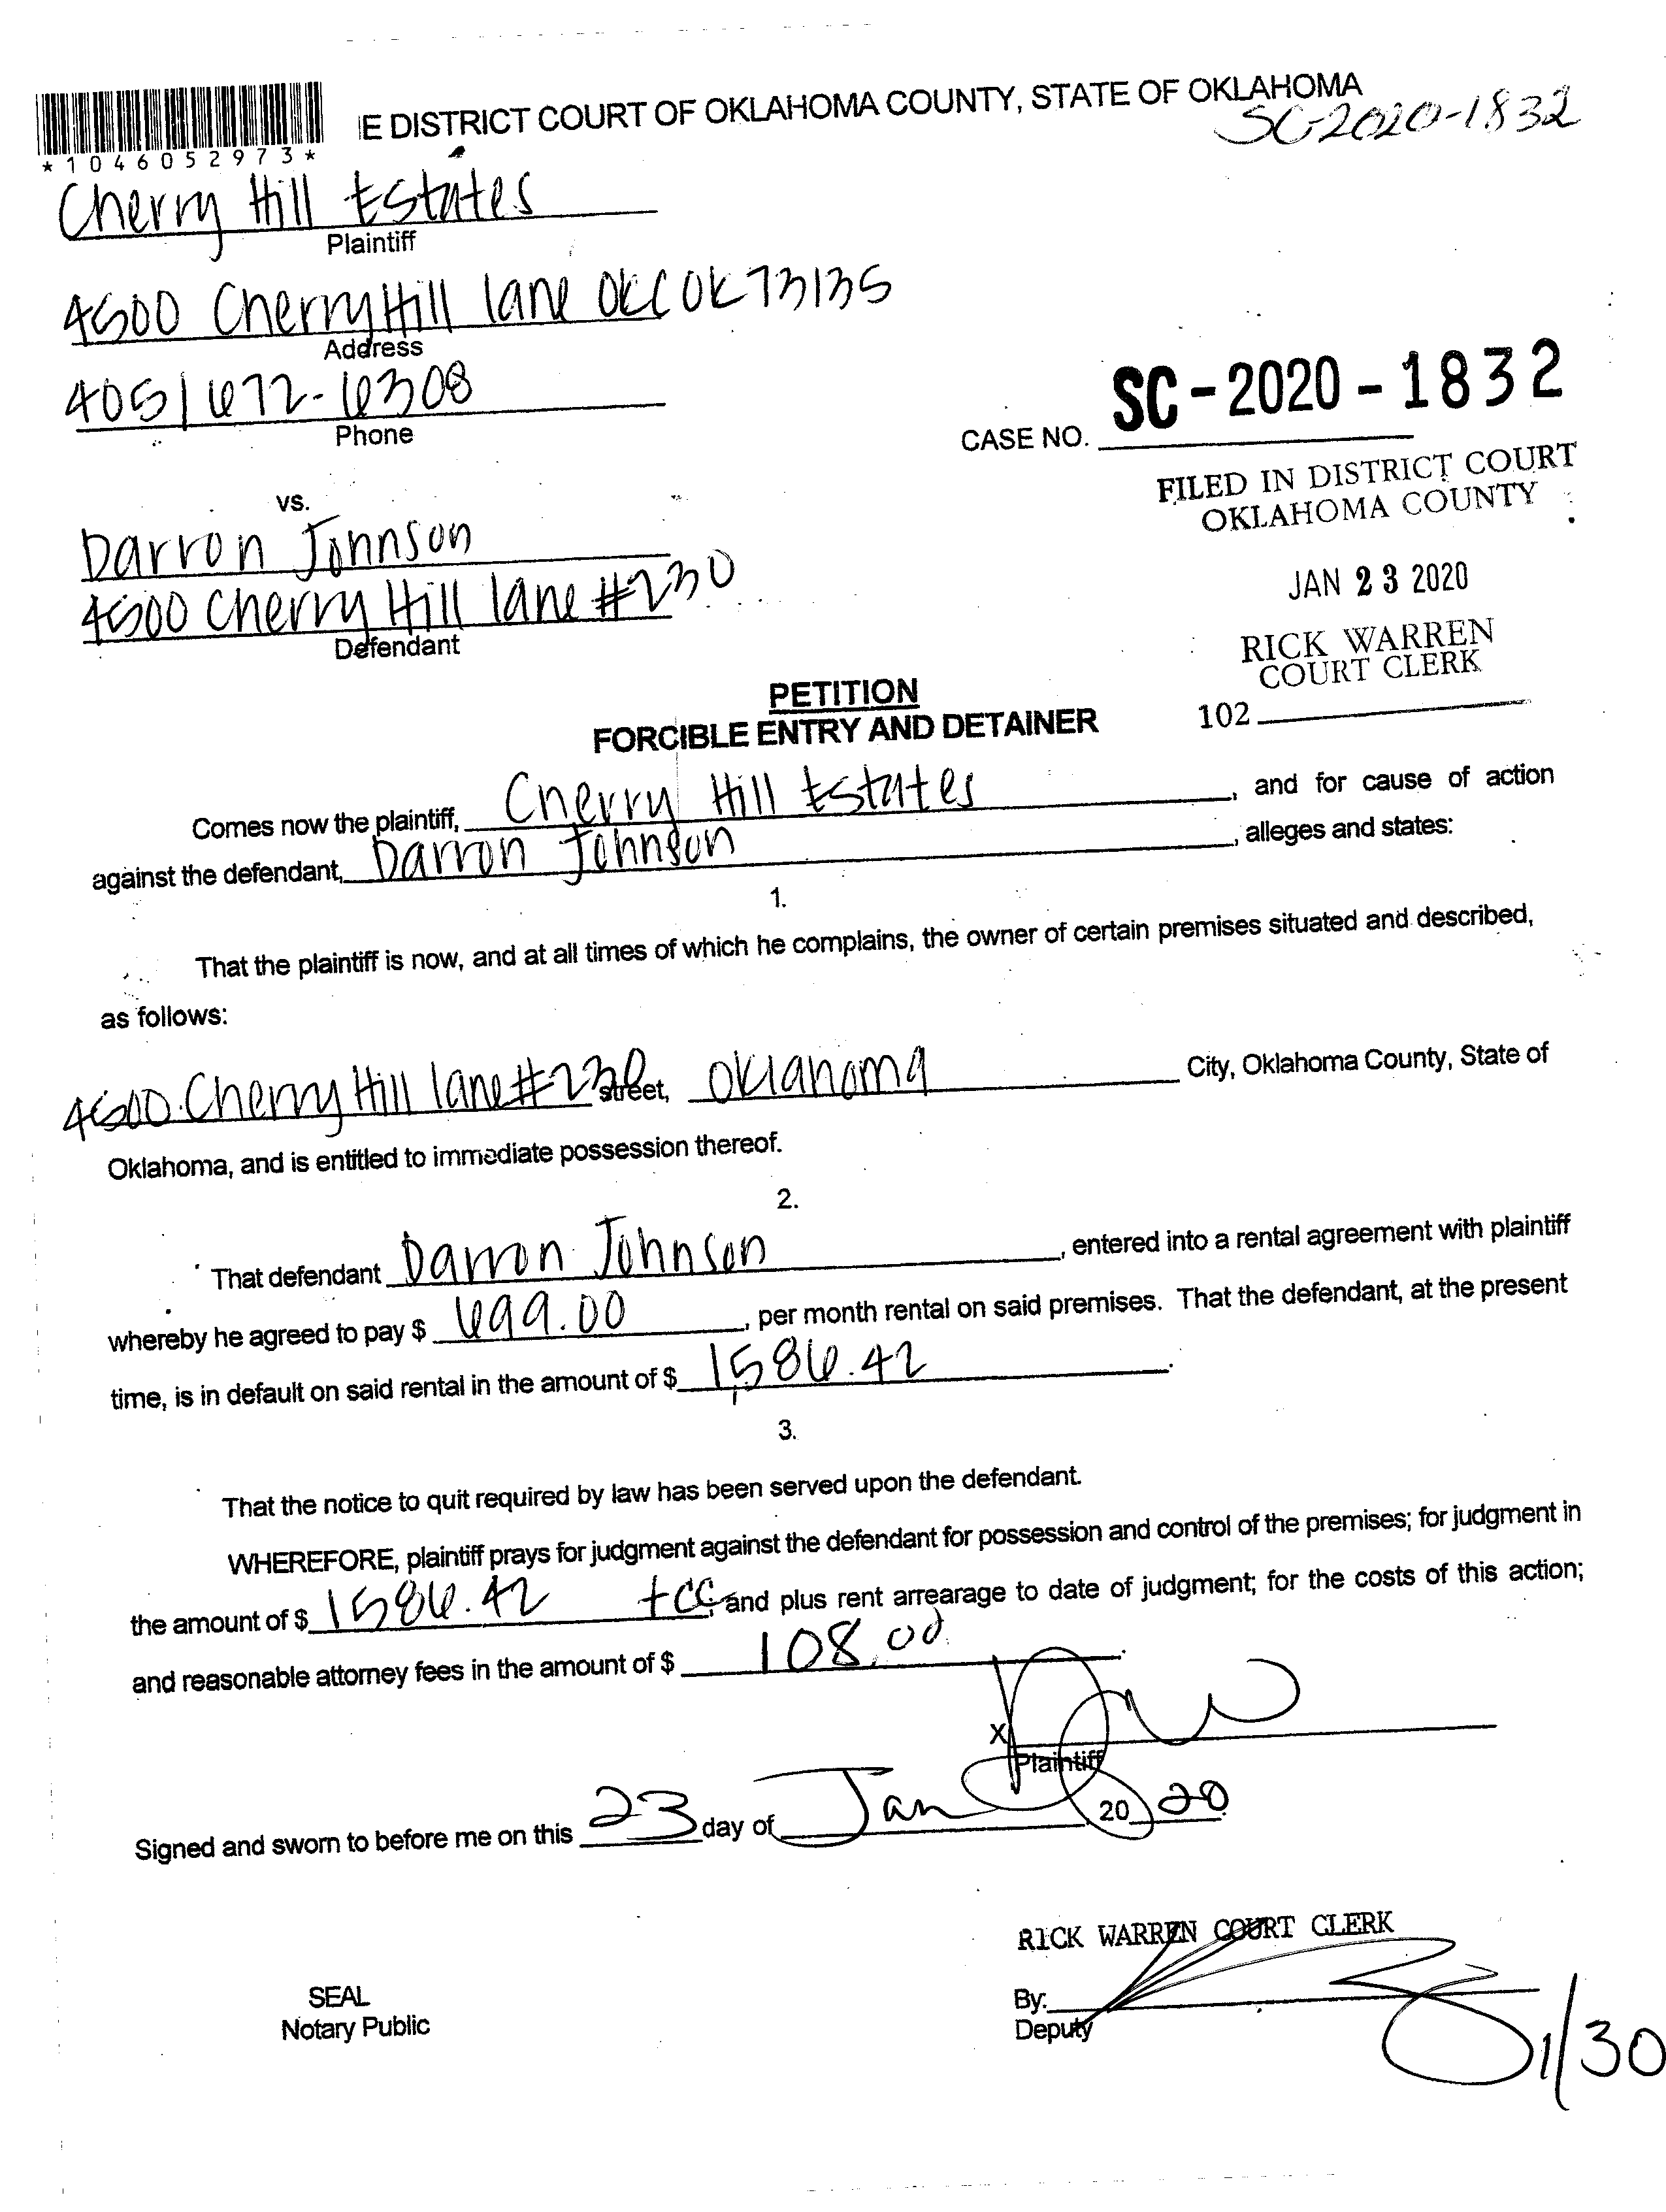 E DISTRICT COURT OF OKLAHOMA COUNTY, STATE OF OKLAHOMA
SC-2020-1832
*1046052973*
Cherry Hill Estates
Plaintiff
4500 Cherry Hill lane OKC OK 73135
Address
405/672-6308
Phone
SC-2020-1832
CASE NO.
FILED IN DISTRICT COURT
OKLAHOMA COUNTY
JAN 23 2020
RICK WARREN
COURT CLERK
102
vs.
Darron Johnson
4500 Cherry Hill lane #230
Defendant
PETITION
FORCIBLE ENTRY AND DETAINER
Comes now the plaintiff, Cherry Hill Estates, and for cause of action
against the defendant, Darron Johnson, alleges and states:
1.
That the plaintiff is now, and at all times of which he complains, the owner of certain premises situated and described,
as follows:
4500 Cherry Hill lane #230 street, Oklahoma City, Oklahoma County, State of
Oklahoma, and is entitled to immediate possession thereof.
2.
That defendant Darron Johnson, entered into a rental agreement with plaintiff
whereby he agreed to pay $ 699.00, per month rental on said premises. That the defendant, at the present
time, is in default on said rental in the amount of $ 1586.42.
3.
That the notice to quit required by law has been served upon the defendant.
WHEREFORE, plaintiff prays for judgment against the defendant for possession and control of the premises; for judgment in
the amount of $ 1586.42 +CC, and plus rent arrearage to date of judgment; for the costs of this action;
and reasonable attorney fees in the amount of $ 108.00.
X
Plaintiff
Signed and sworn to before me on this 23 day of Jan, 2020
RICK WARREN COURT CLERK
SEAL
Notary Public
By:
Deputy
1/30